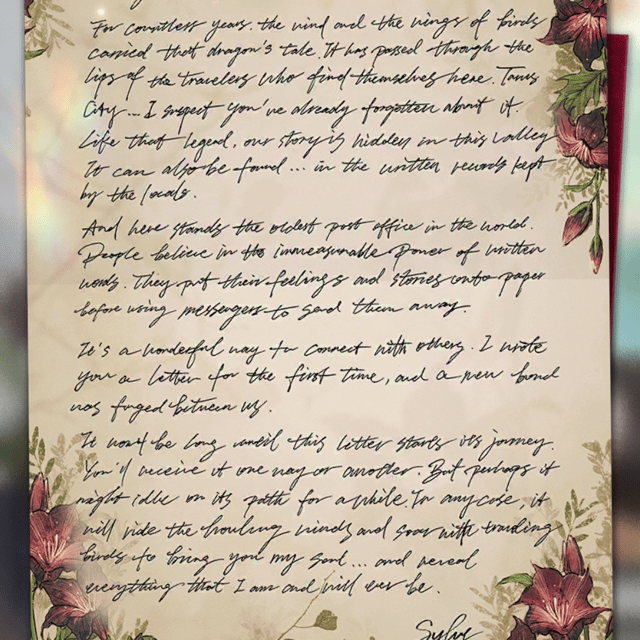 For countless years. the wind and the wings of birds
carried that dragon's tale. It has passed through the
lips of the travelers who find themselves here. Tanis
City... I suspect you've already forgotten about it.
Like that legend, our story is hidden in this valley
It can also be found... in the written records kept
by the locals.
And here stands the oldest post office in the world.
People believe in the immeasurable power of written
words. They put their feelings and stories onto paper
before using messengers to send them away.
It's a wonderful way to connect with others. I wrote
you a letter for the first time, and a new bond
was forged between us.
It won't be long until this letter starts its journey.
You'll receive it one way or another. But perhaps it
might idle on its path for a while. In any case, it
will ride the howling winds and soar with traveling
birds to bring you my soul... and reveal
everything that I am and will ever be.